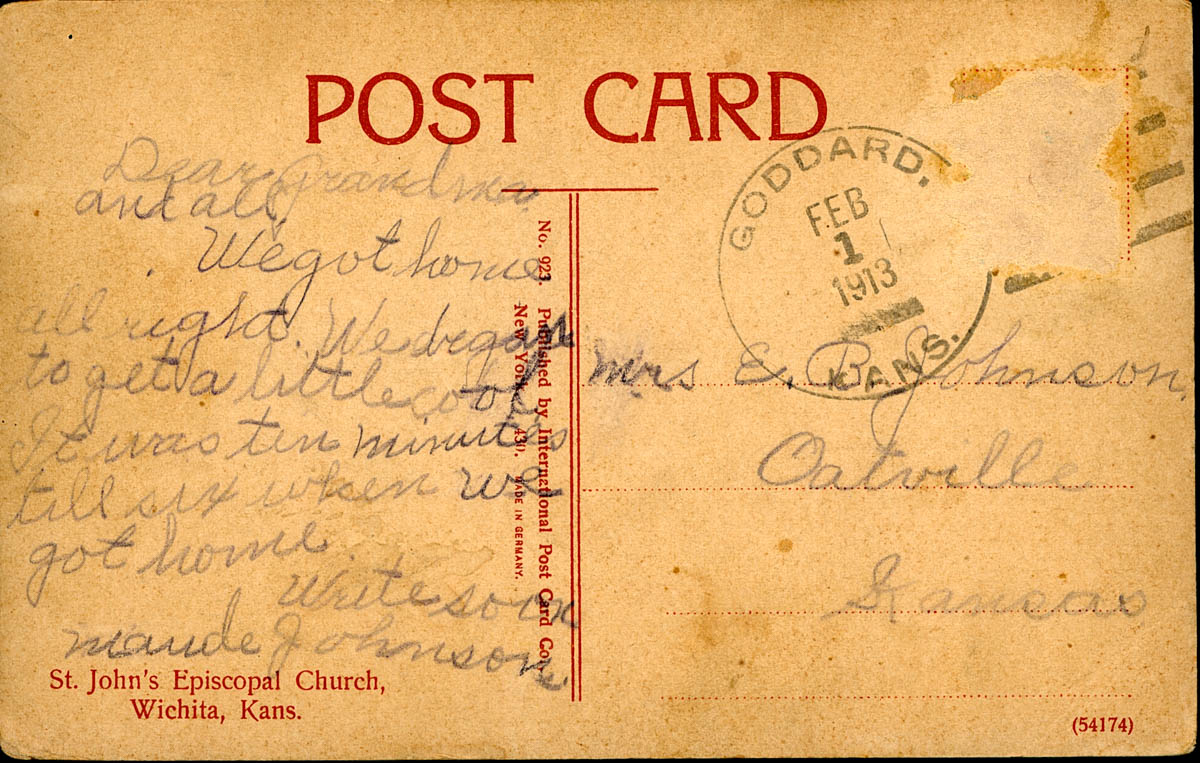 POST CARD
Dear Grandma
and all,
We got home
all right. We began
to get a little cold.
It was ten minutes
till six when we
got home.
Write soon
Maude Johnson
St. John's Episcopal Church,
Wichita, Kans.
No. 923. Published by International Post Card Co.,
New York. 430. MADE IN GERMANY.
GODDARD,
FEB
1
1913
KANS.
Mrs E. B. Johnson,
Oatville
Kansas
(54174)